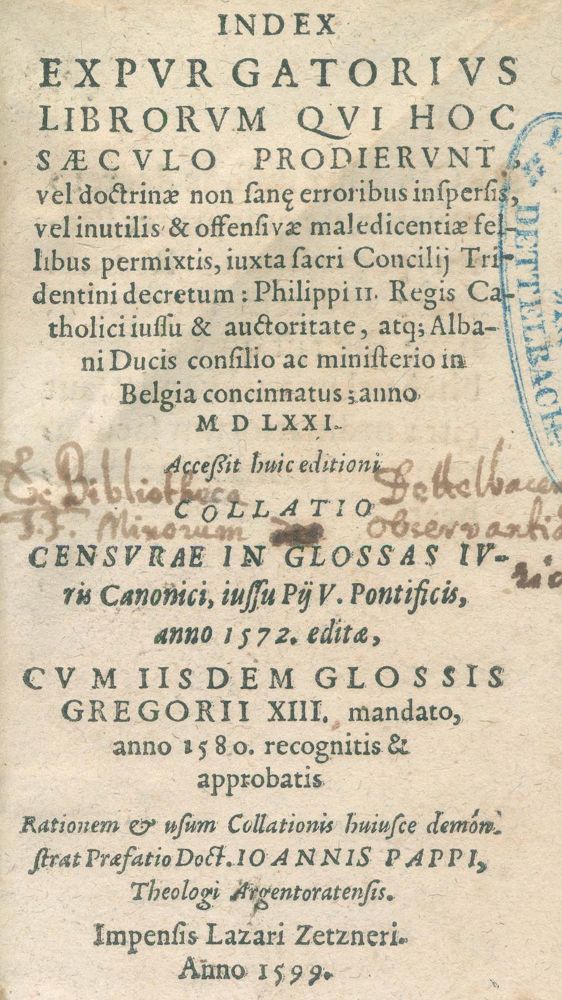 INDEX
EXPVRGATORIVS
LIBRORVM QVI HOC
SÆCVLO PRODIERVNT,
vel doctrinæ non ſanę erroribus inſperſis,
vel inutilis & offenſivæ maledicentiæ fel-
libus permixtis, iuxta ſacri Concilij Tri-
dentini decretum: Philippi II. Regis Ca-
tholici iuſſu & auctoritate, atq; Alba-
ni Ducis conſilio ac miniſterio in
Belgia concinnatus; anno
M D LXXI.
Acceſsit huic editioni
Ex Bibliotheca Dettelbacen
COLLATIO
F.F. Minorum observantiæ
CENSVRAE IN GLOSSAS IV-
ris Canonici, iuſſu Pij V. Pontificis,
anno 1572. editæ,
CVM IISDEM GLOSSIS
GREGORII XIII. mandato,
anno 1580. recognitis &
approbatis
Rationem & uſum Collationis huiuſce demōn-
ſtrat Præfatio Doct. IOANNIS PAPPI,
Theologi Argentoratenſis.
Impenſis Lazari Zetzneri.
Anno 1599.
DETTELBACH